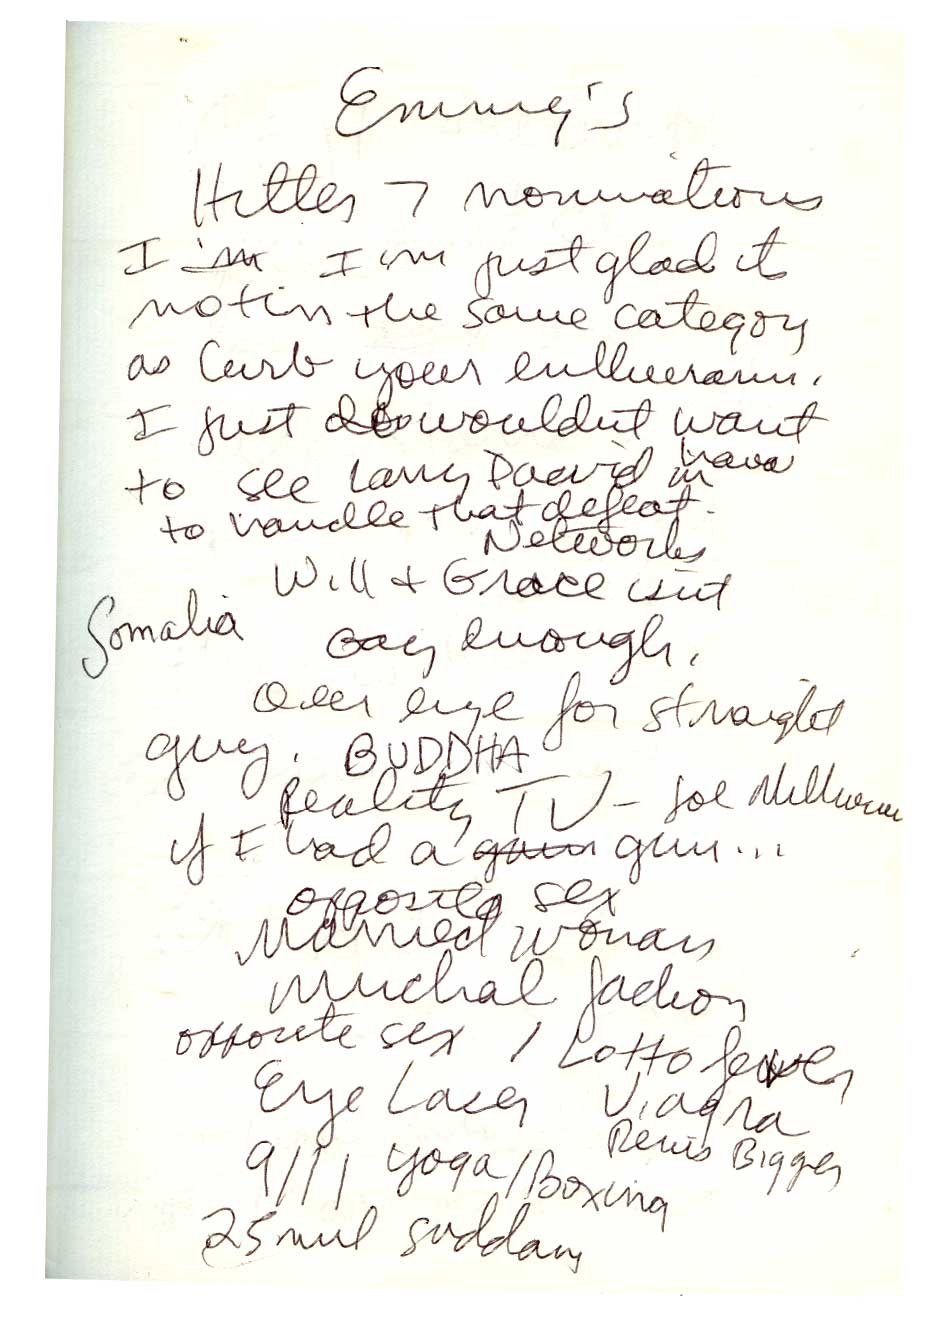 Emmy's
Hitler 7 nominations
I im I im just glad it
not in the same category
as Curb your enthusiasm.
I just do wouldnt want
to see Larry David in have
to handle that defeat.
Networks
Will + Grace isnt
Somalia gay enough.
eye for straight
guy. BUDDHA
Reality TV - Joe Millionaire
if I had a gun...
opposite sex
Married woman
Michal Jackson
opposite sex / Lotto fever
Eye Laser Viagra
Penis Bigger
9/11 yoga/Boxing
25 mil Suddam